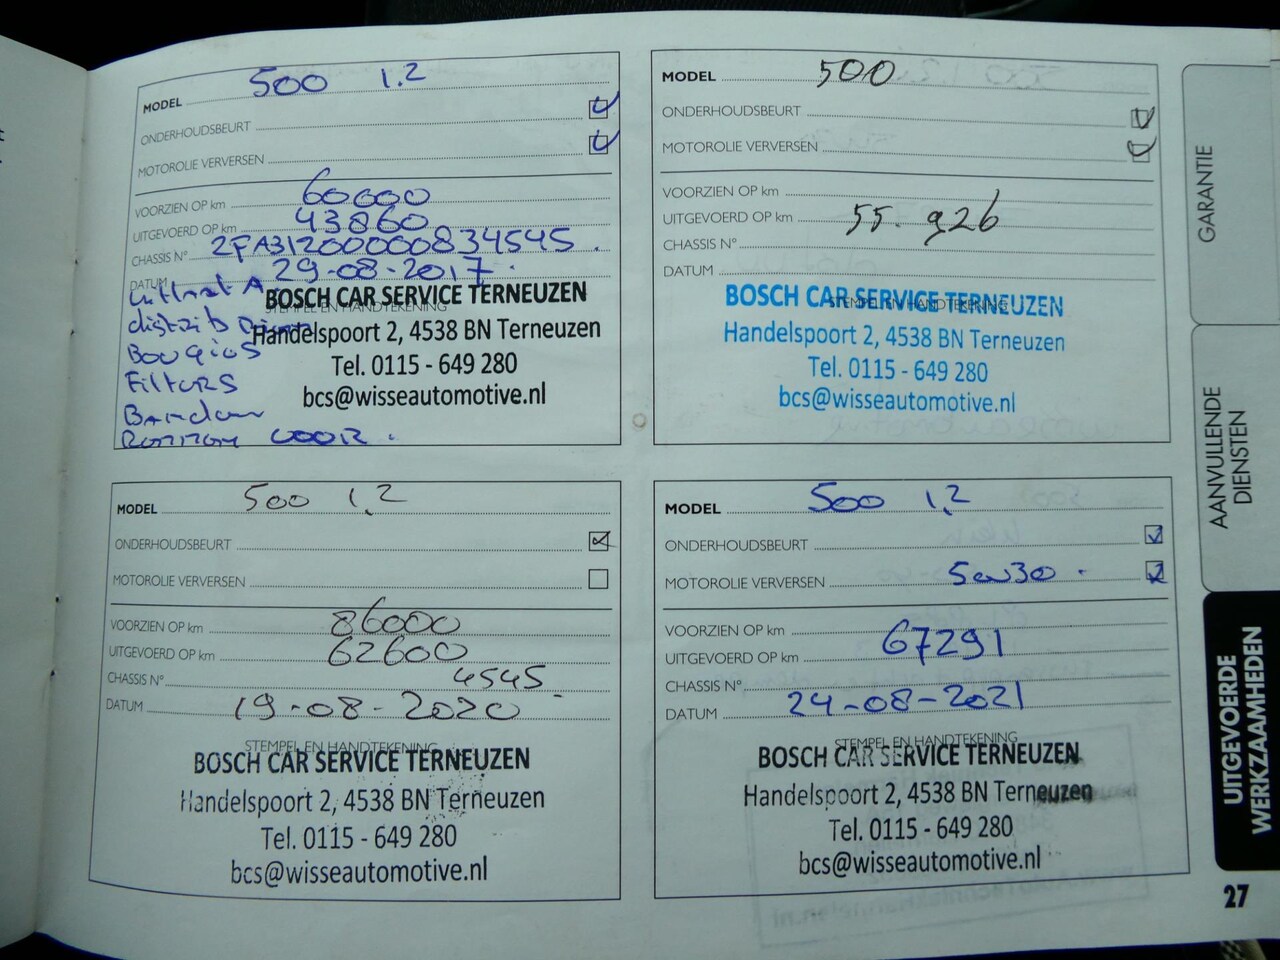 MODEL 500 1.2
ONDERHOUDSBEURT
MOTOROLIE VERVERSEN
VOORZIEN OP km 60000
UITGEVOERD OP km 43860
CHASSIS N° ZFA31200000834545.
DATUM 29-08-2017.
STEMPEL EN HANDTEKENING
BOSCH CAR SERVICE TERNEUZEN
distrib
Handelspoort 2, 4538 BN Terneuzen
Bougies
Tel. 0115 - 649 280
Filters
bcs@wisseautomotive.nl
Banden
Remmen voor.
MODEL 500
ONDERHOUDSBEURT
MOTOROLIE VERVERSEN
VOORZIEN OP km
UITGEVOERD OP km 55.926
CHASSIS N°
DATUM
STEMPEL EN HANDTEKENING
BOSCH CAR SERVICE TERNEUZEN
Handelspoort 2, 4538 BN Terneuzen
Tel. 0115 - 649 280
bcs@wisseautomotive.nl
MODEL 500 1.2
ONDERHOUDSBEURT
MOTOROLIE VERVERSEN
VOORZIEN OP km 86000
UITGEVOERD OP km 62600
CHASSIS N° 4545
DATUM 19-08-2020
STEMPEL EN HANDTEKENING
BOSCH CAR SERVICE TERNEUZEN
Handelspoort 2, 4538 BN Terneuzen
Tel. 0115 - 649 280
bcs@wisseautomotive.nl
MODEL 500 1.2
ONDERHOUDSBEURT
MOTOROLIE VERVERSEN 5W30.
VOORZIEN OP km
UITGEVOERD OP km 67291
CHASSIS N°
DATUM 24-08-2021
STEMPEL EN HANDTEKENING
BOSCH CAR SERVICE TERNEUZEN
Handelspoort 2, 4538 BN Terneuzen
Tel. 0115 - 649 280
bcs@wisseautomotive.nl
GARANTIE
AANVULLENDE
DIENSTEN
UITGEVOERDE
WERKZAAMHEDEN
27